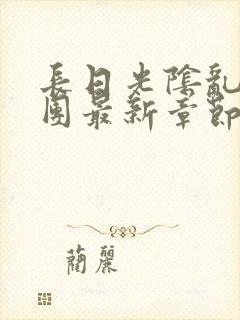 長日光陰亂
團最新章節
蘭麗